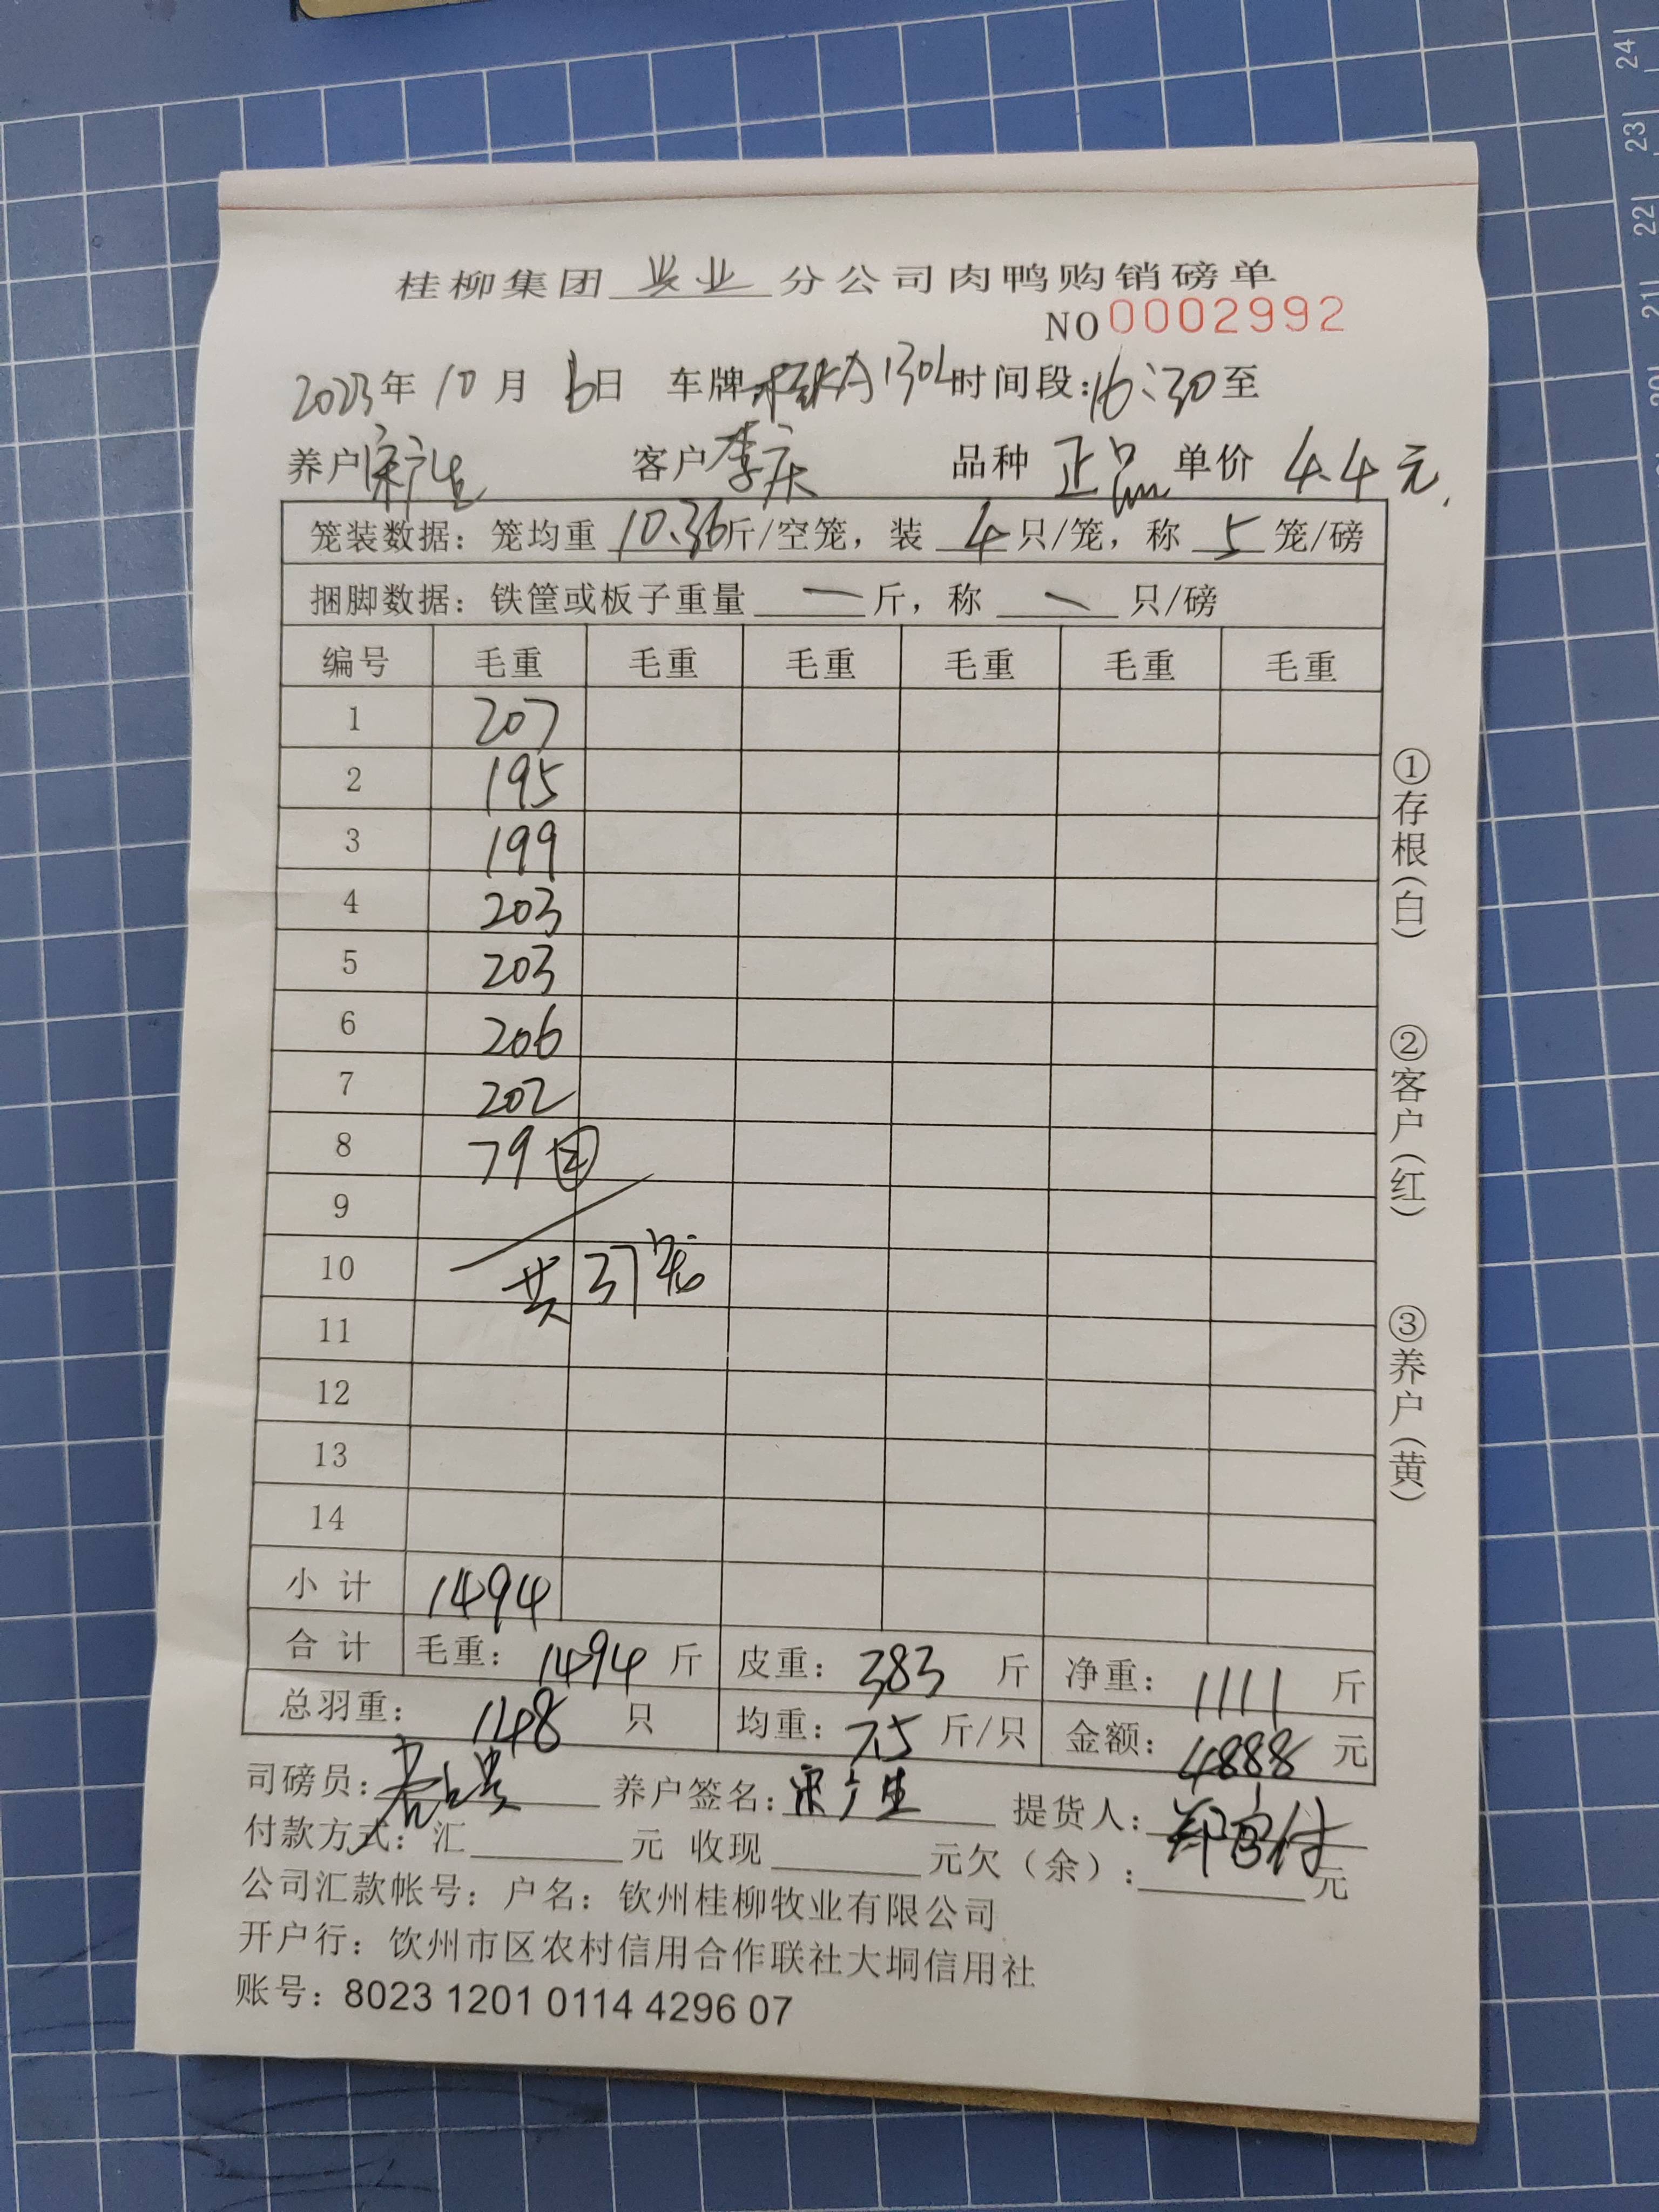 桂柳集团 兴业 分公司肉鸭购销磅单
NO 0002992
2023年 10月 6日 车牌 时间段:16:30至
养户 宋广生 客户 李庆 品种 正品 单价 4.4元
笼装数据: 笼均重 10.36斤/空笼, 装 4 只/笼, 称 5 笼/磅
捆脚数据: 铁筐或板子重量 一 斤, 称 一 只/磅
编号 毛重 毛重 毛重 毛重 毛重 毛重
1 207
2 195
3 199
4 203
5 203
6 206
7 202
8 79 ②
9
10 共37笼
11
12
13
14
小计 1494
合计 毛重: 1494 斤 皮重: 383 斤 净重: 1111 斤
总羽重: 148 只 均重: 7.5 斤/只 金额: 4888 元
司磅员: 养户签名: 宋广生 提货人:
付款方式: 汇 元 收现 元欠(余): 元
公司汇款帐号: 户名: 钦州桂柳牧业有限公司
开户行: 饮州市区农村信用合作联社大垌信用社
账号: 8023 1201 0114 4296 07
①存根(白)
②客户(红)
③养户(黄)
24
23
22
21
20